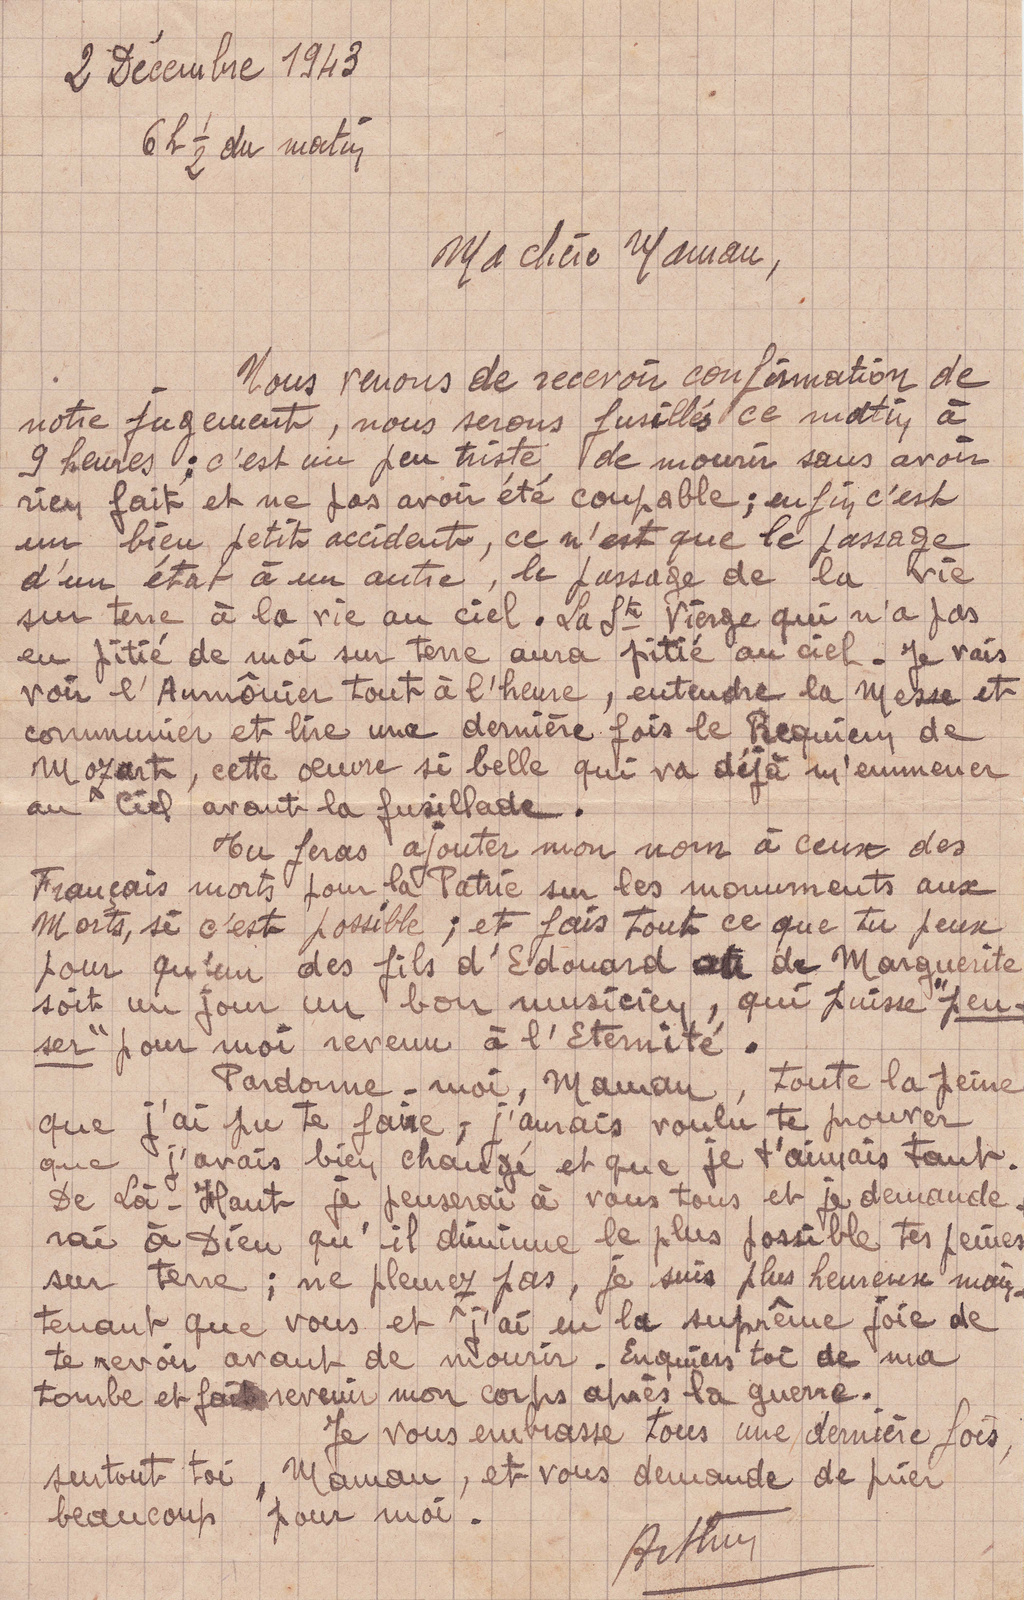 2 Décembre 1943
6 h 1/2 du matin
Ma chère Maman,
Nous venons de recevoir confirmation de
notre jugement, nous serons fusillés ce matin à
9 heures ; c'est un peu triste de mourir sans avoir
rien fait et ne pas avoir été coupable ; enfin c'est
un bien petit accident, ce n'est que le passage
d'un état à un autre, le passage de la vie
sur terre à la vie au ciel. La Ste Vierge qui n'a pas
eu pitié de moi sur terre aura pitié au ciel. Je vais
voir l'Aumônier tout à l'heure, entendre la Messe et
communier et lire une dernière fois le Requiem de
Mozart, cette oeuvre si belle qui va déjà m'emmener
au Ciel avant la fusillade.
Tu feras ajouter mon nom à ceux des
Français morts pour la Patrie sur les monuments aux
Morts, si c'est possible ; et fais tout ce que tu peux
pour qu'un des fils d'Edouard et de Marguerite
soit un jour un bon musicien, qui puisse "pen-
ser" pour moi revenu à l'Eternité.
Pardonne-moi, Maman, toute la peine
que j'ai pu te faire, j'aurais voulu te prouver
que j'avais bien changé et que je t'aimais tant.
De Là-Haut je penserai à vous tous et je demande-
rai à Dieu qu'il diminue le plus possible tes peines
sur terre ; ne pleurez pas, je suis plus heureux main-
tenant que vous et j'ai eu la suprême joie de
te revoir avant de mourir. Enquiers toi de ma
tombe et fait revenir mon corps après la guerre.
Je vous embrasse tous une dernière fois,
surtout toi, Maman, et vous demande de prier
beaucoup pour moi.
Arthur